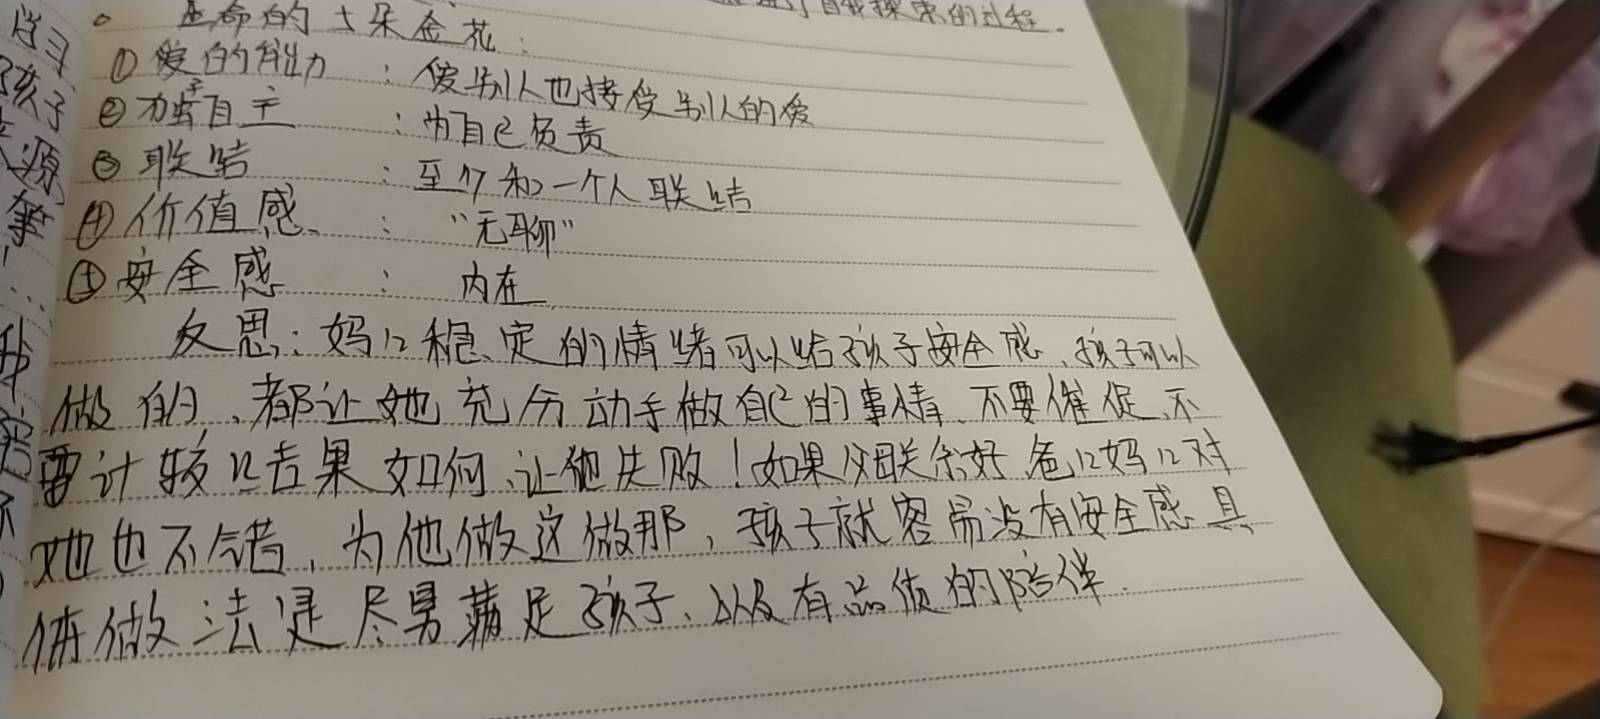 自我探索的过程。
生命的五朵金花:
① 爱的能力 : 爱别人也接受别人的爱
② 独立自主 : 为自己负责
③ 联结 : 至少和一个人联结
④ 价值感 : “无聊”
⑤ 安全感 : 内在
反思:妈妈稳定的情绪可以给孩子安全感,孩子可以
做的、都让她充分动手做自己的事情、不要催促、不
要计较结果如何、让他失败!如果父母关系好 爸爸妈妈对
她也不错,为他做这做那,孩子就容易没有安全感 具
体做法是尽量满足孩子、以及有品质的陪伴.
孩子
源
等
我